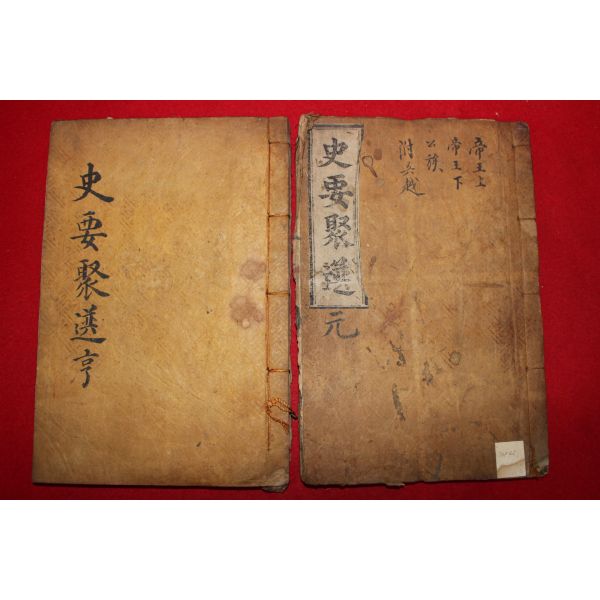 史要聚選亨
史要聚選
元
帝王上
帝王下
公族
附吳越